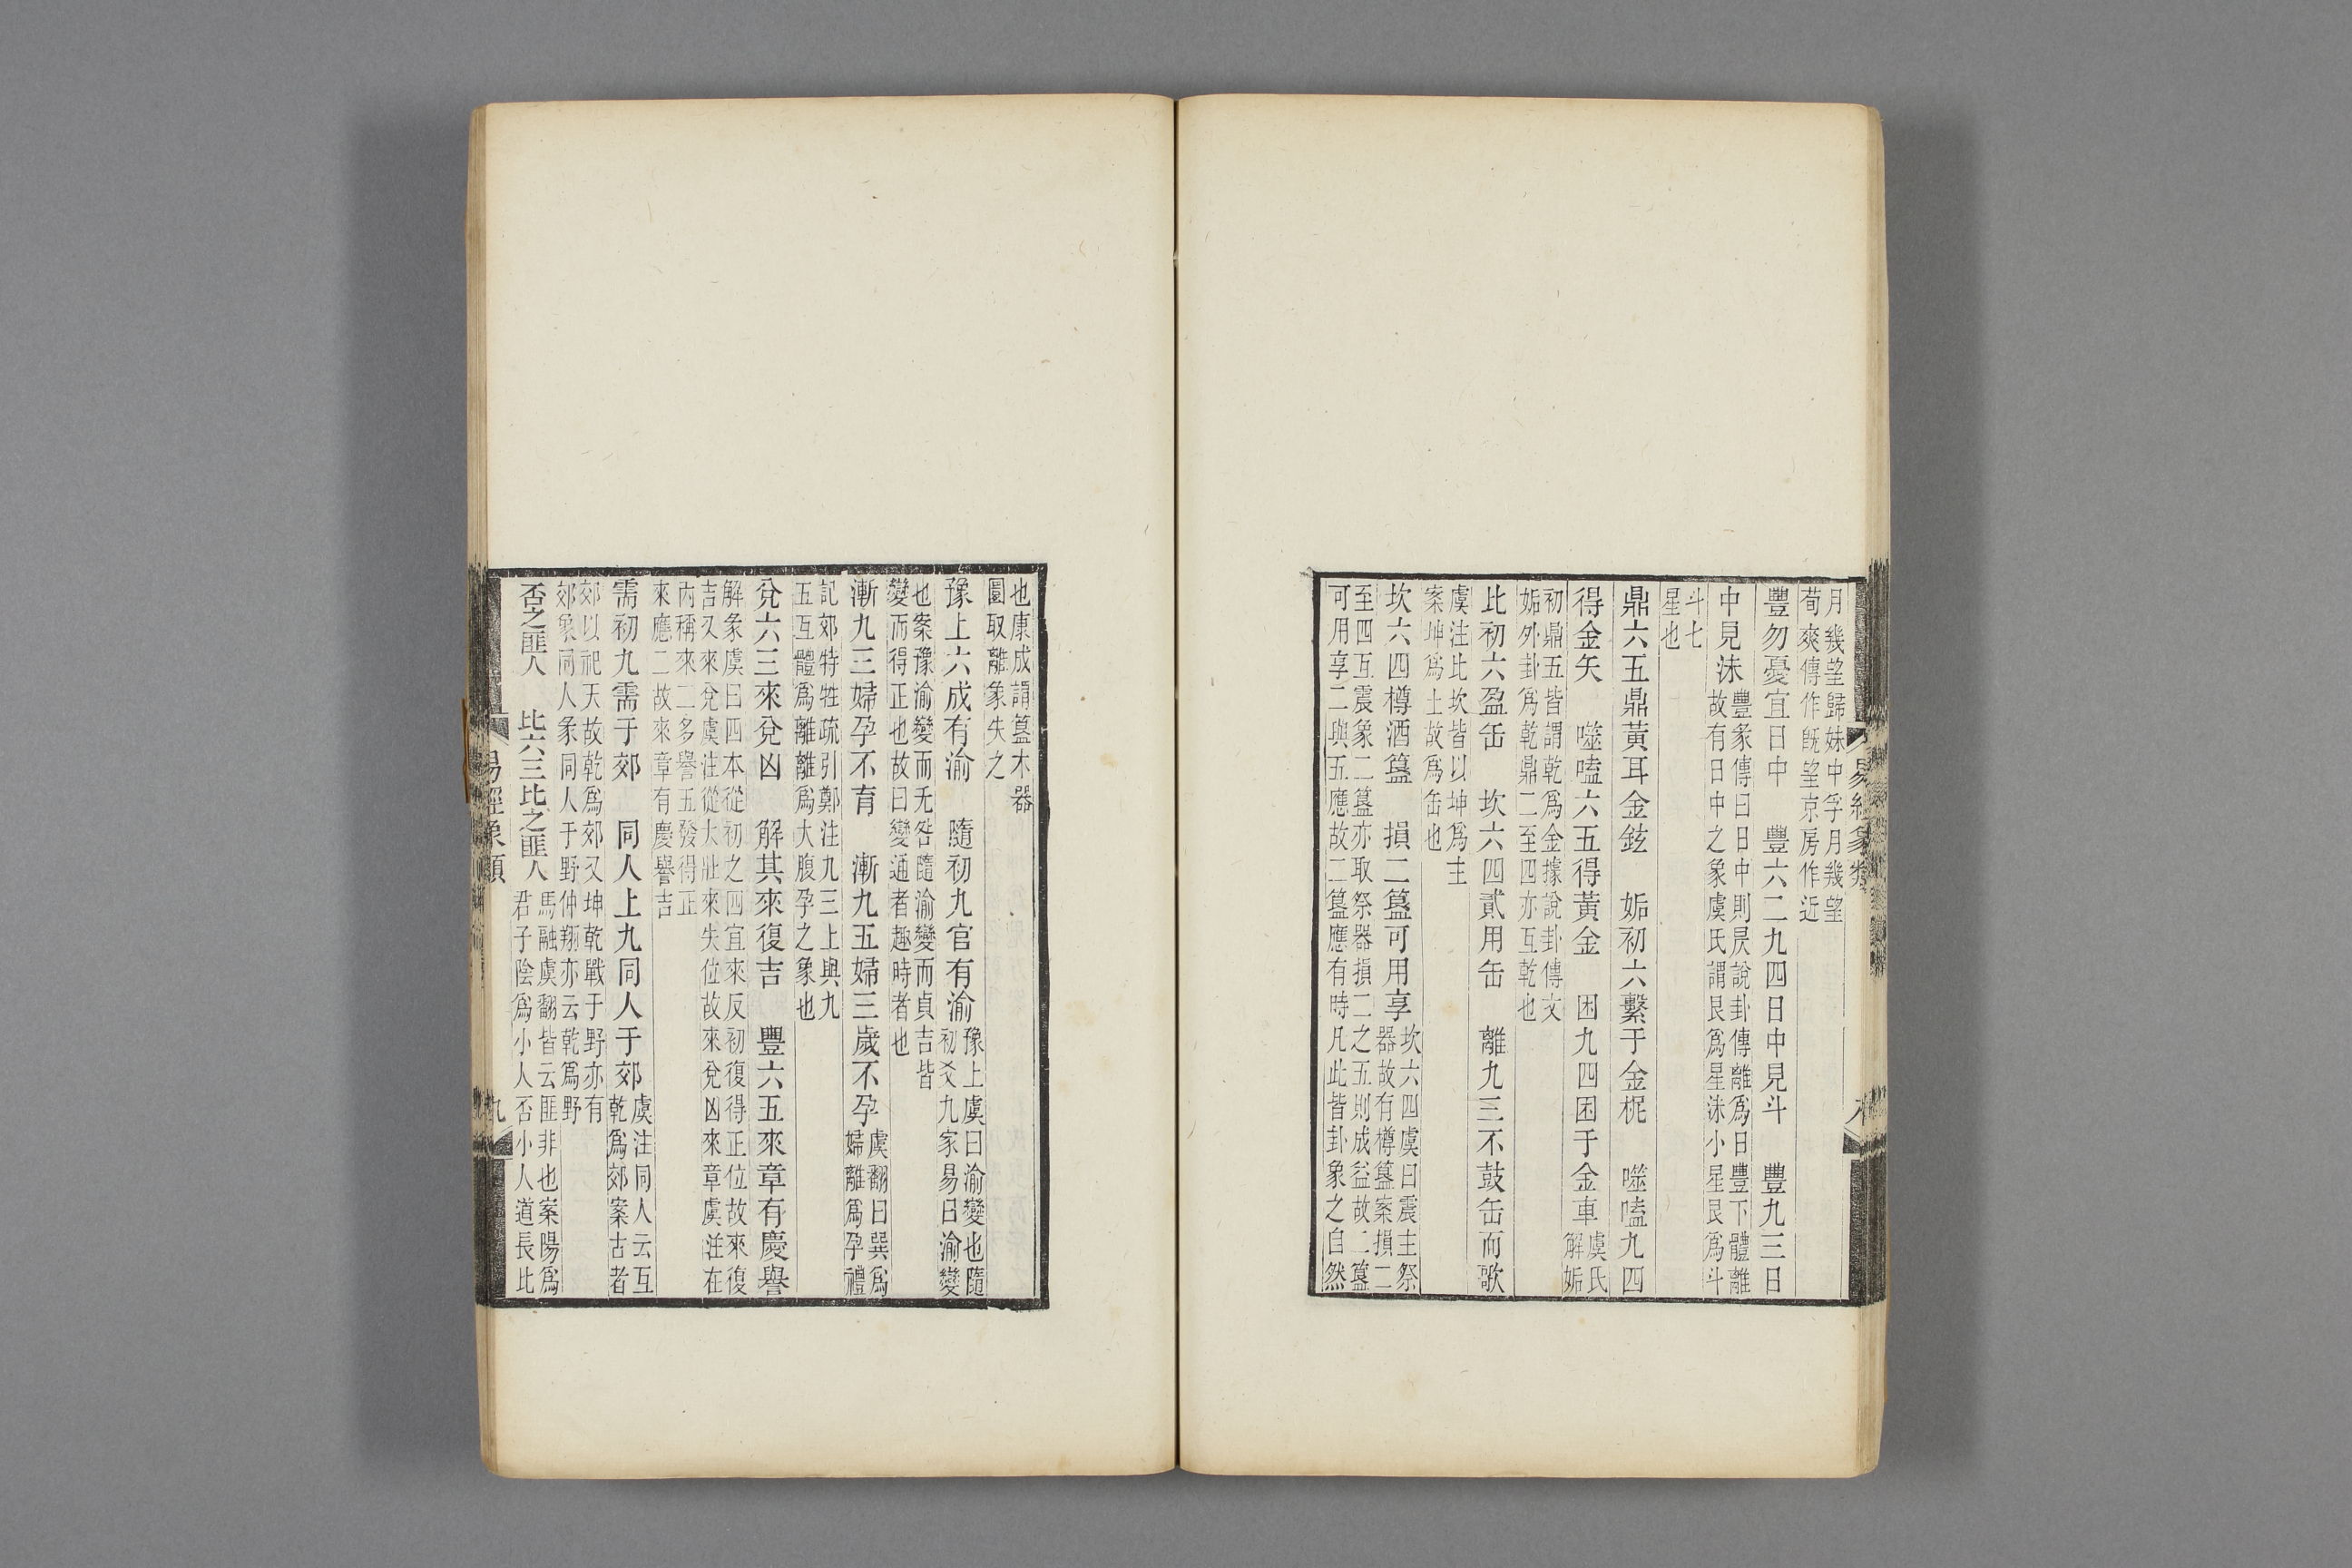 月幾望歸妹中孚月幾望
荀爽傳作旣望京房作近
豐勿憂宜日中　豐六二九四日中見斗　豐九三日
中見沬
豐彖傳曰日中則昃說卦傳離爲日豐下體離
故有日中之象虞氏謂艮爲星沬小星艮爲斗
斗七
星也
鼎六五鼎黃耳金鉉　姤初六繫于金柅　噬嗑九四
得金矢　噬嗑六五得黃金　困九四困于金車
虞氏
解姤
初鼎五皆謂乾爲金據說卦傳文
姤外卦爲乾鼎二至四亦互乾也
比初六盈缶　坎六四貳用缶　離九三不鼓缶而歌
虞注比坎皆以坤爲主
案坤爲土故爲缶也
坎六四樽酒簋　損二簋可用享
坎六四虞曰震主祭
器故有樽簋案損二
至四互震象二簋亦取祭器損二之五則成益故二簋
可用享二與五應故二簋應有時凡此皆卦象之自然
也康成謂簋木器
圜取離象失之
豫上六成有渝　隨初九官有渝
豫上虞曰渝變也隨
初爻九家易曰渝變
也案豫渝變而无咎隨渝變而貞吉皆
變而得正也故曰變通者趣時者也
漸九三婦孕不育　漸九五婦三歲不孕
虞翻曰巽爲
婦離爲孕禮
記郊特牲疏引鄭注九三上與九
五互體爲離離爲大腹孕之象也
兌六三來兌凶　解其來復吉　豐六五來章有慶譽
解彖虞曰四本從初之四宜來反初復得正位故來復
吉又來兌虞注從大壯來失位故來兌凶來章虞注在
內稱來二多譽五發得正
來應二故來章有慶譽吉
需初九需于郊　同人上九同人于郊
虞注同人云互
乾爲郊案古者
郊以祀天故乾爲郊又坤乾戰于野亦有
郊象同人彖同人于野仲翔亦云乾爲野
否之匪人　比六三比之匪人
馬融虞翻皆云匪非也案陽爲
君子陰爲小人否小人道長比
易經象類
九